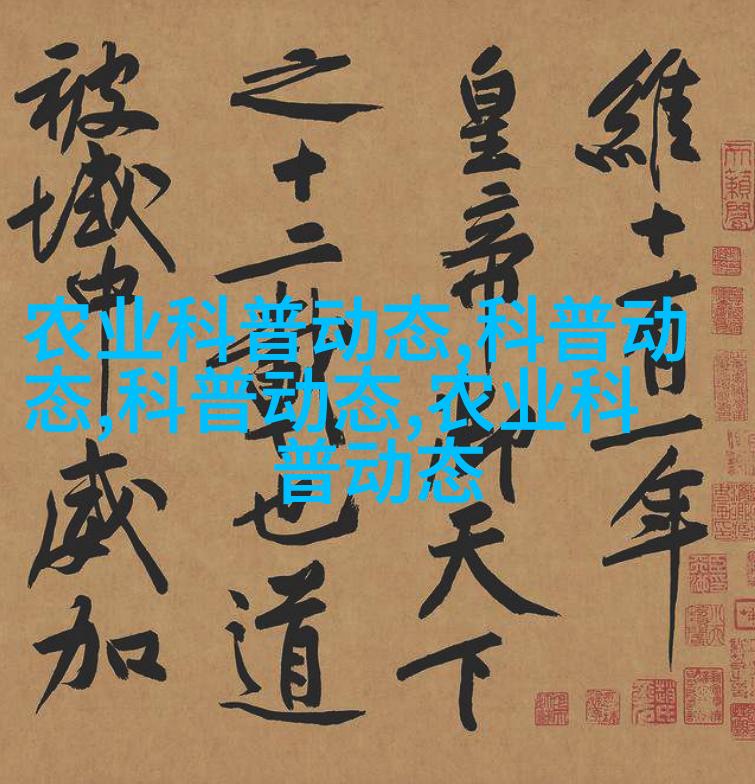 維十有一年
皇帝御天下
之十二載也道
被域中威加
农业科普动态,科普动
态,科普动态,农业科
普动态